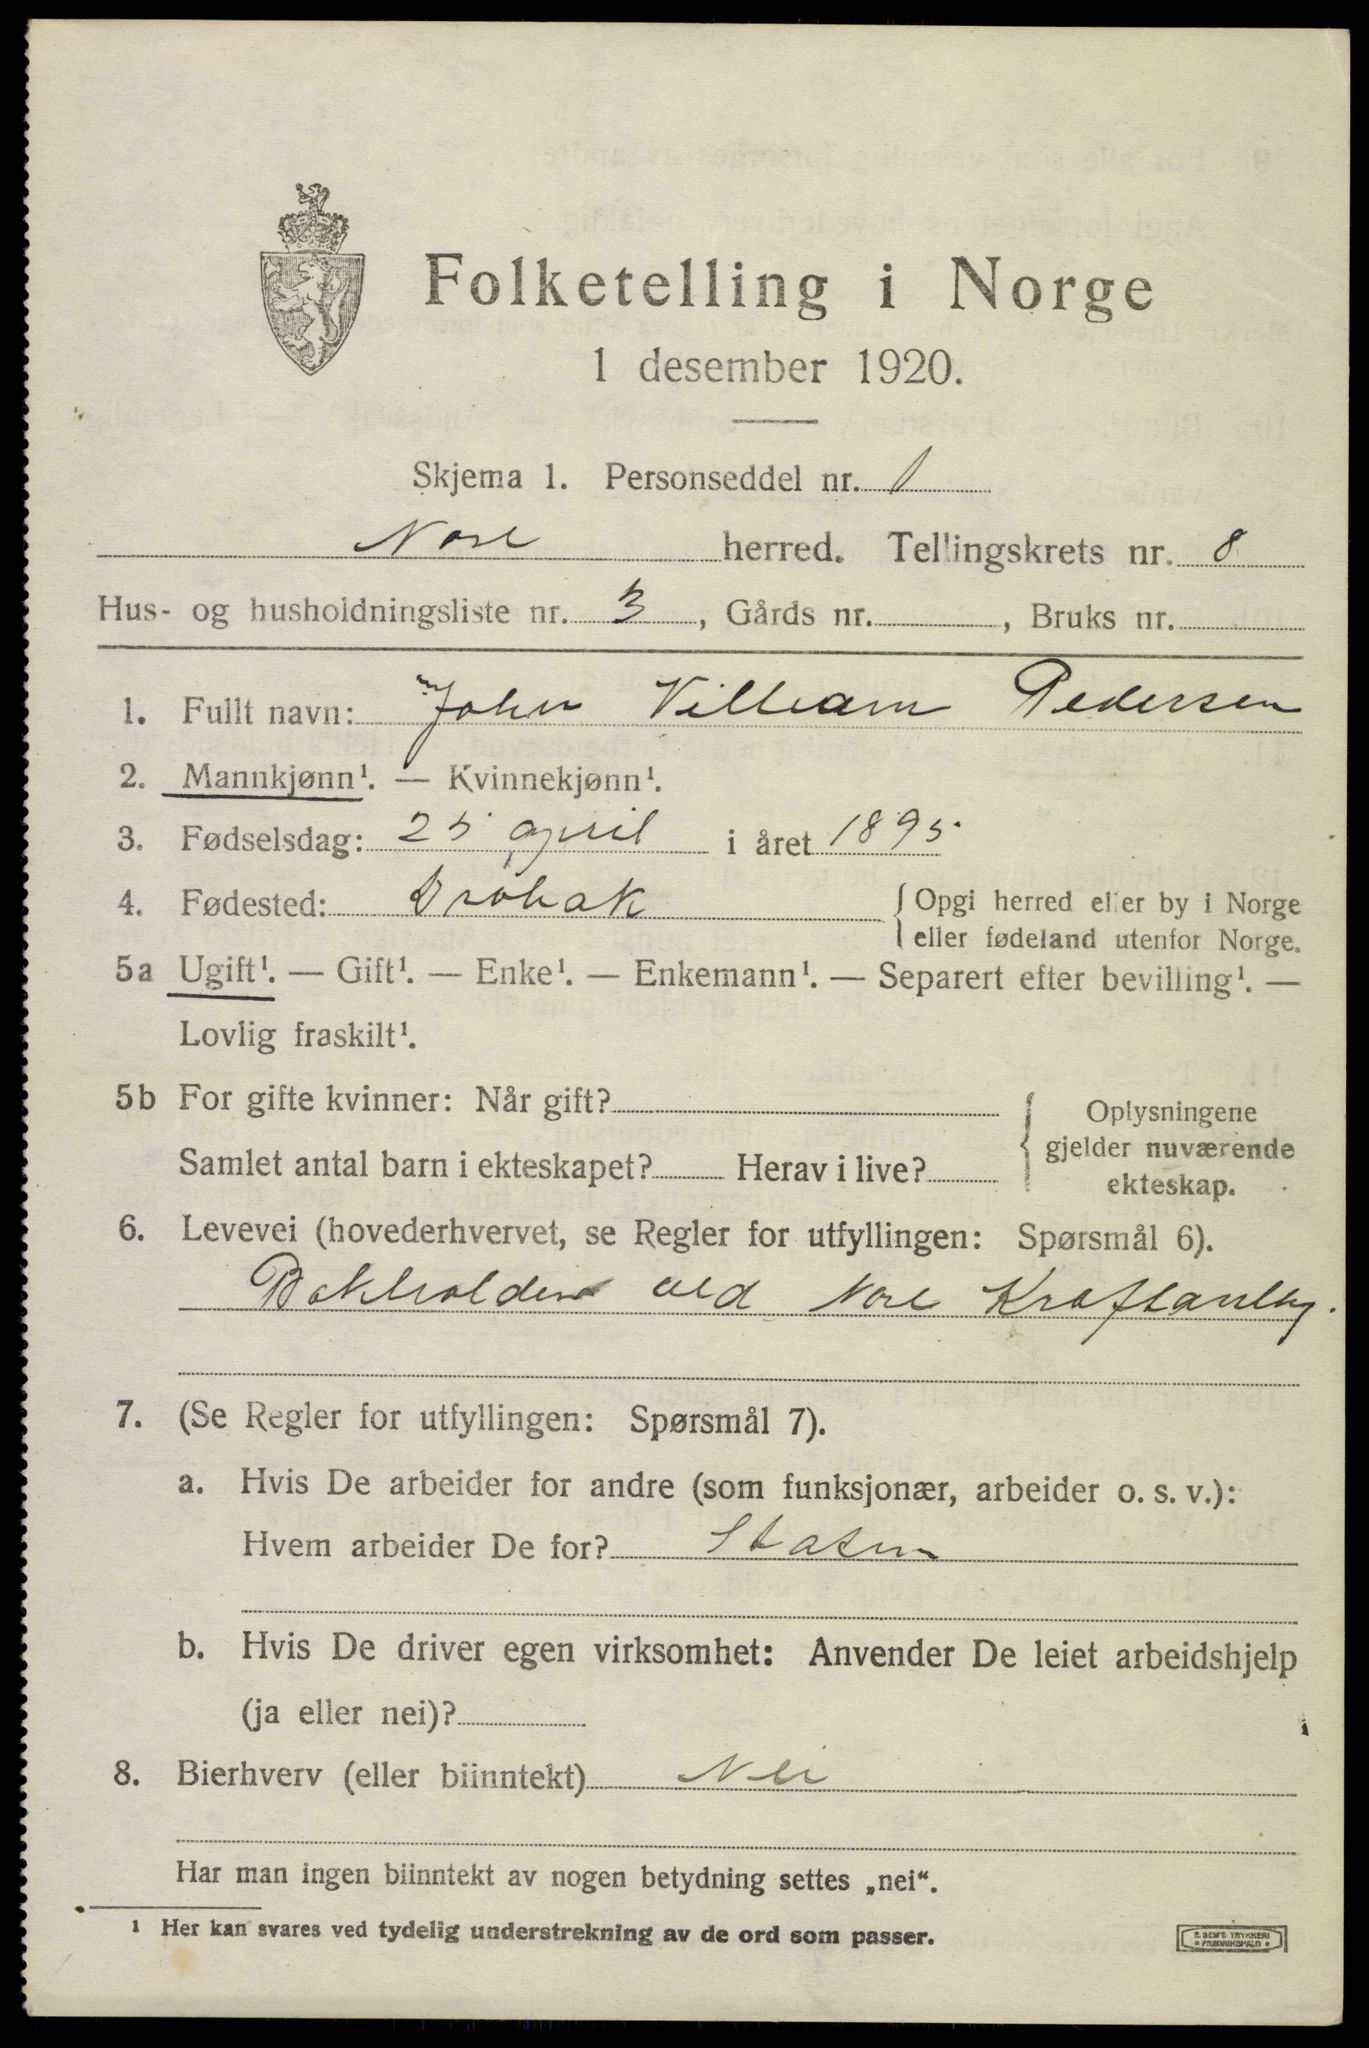 Folketelling i Norge
1 desember 1920.
Skjema 1. Personseddel nr. 1
Nore herred. Tellingskrets nr. 8
Hus- og husholdningsliste nr. 3, Gårds nr. , Bruks nr.
1. Fullt navn: John Villiam Pedersen
2. Mannkjønn¹. — Kvinnekjønn¹.
3. Fødselsdag: 25 april i året 1895
4. Fødested: Drøbak { Opgi herred eller by i Norge
eller fødeland utenfor Norge.
5a Ugift¹. — Gift¹. — Enke¹. — Enkemann¹. — Separert efter bevilling¹. —
Lovlig fraskilt¹.
5b For gifte kvinner: Når gift? { Oplysningene
gjelder nuværende
Samlet antal barn i ekteskapet? Herav i live?
ekteskap.
6. Levevei (hovederhvervet, se Regler for utfyllingen: Spørsmål 6).
Bokholder ved Nore Kraftanlæg.
7. (Se Regler for utfyllingen: Spørsmål 7).
a. Hvis De arbeider for andre (som funksjonær, arbeider o. s. v.):
Hvem arbeider De for? Staten
b. Hvis De driver egen virksomhet: Anvender De leiet arbeidshjelp
(ja eller nei)?
8. Bierhverv (eller biinntekt) Nei
Har man ingen biinntekt av nogen betydning settes „nei“.
¹ Her kan svares ved tydelig understrekning av de ord som passer.
E. SEM'S TRYKKERI
FREDRIKSHALD